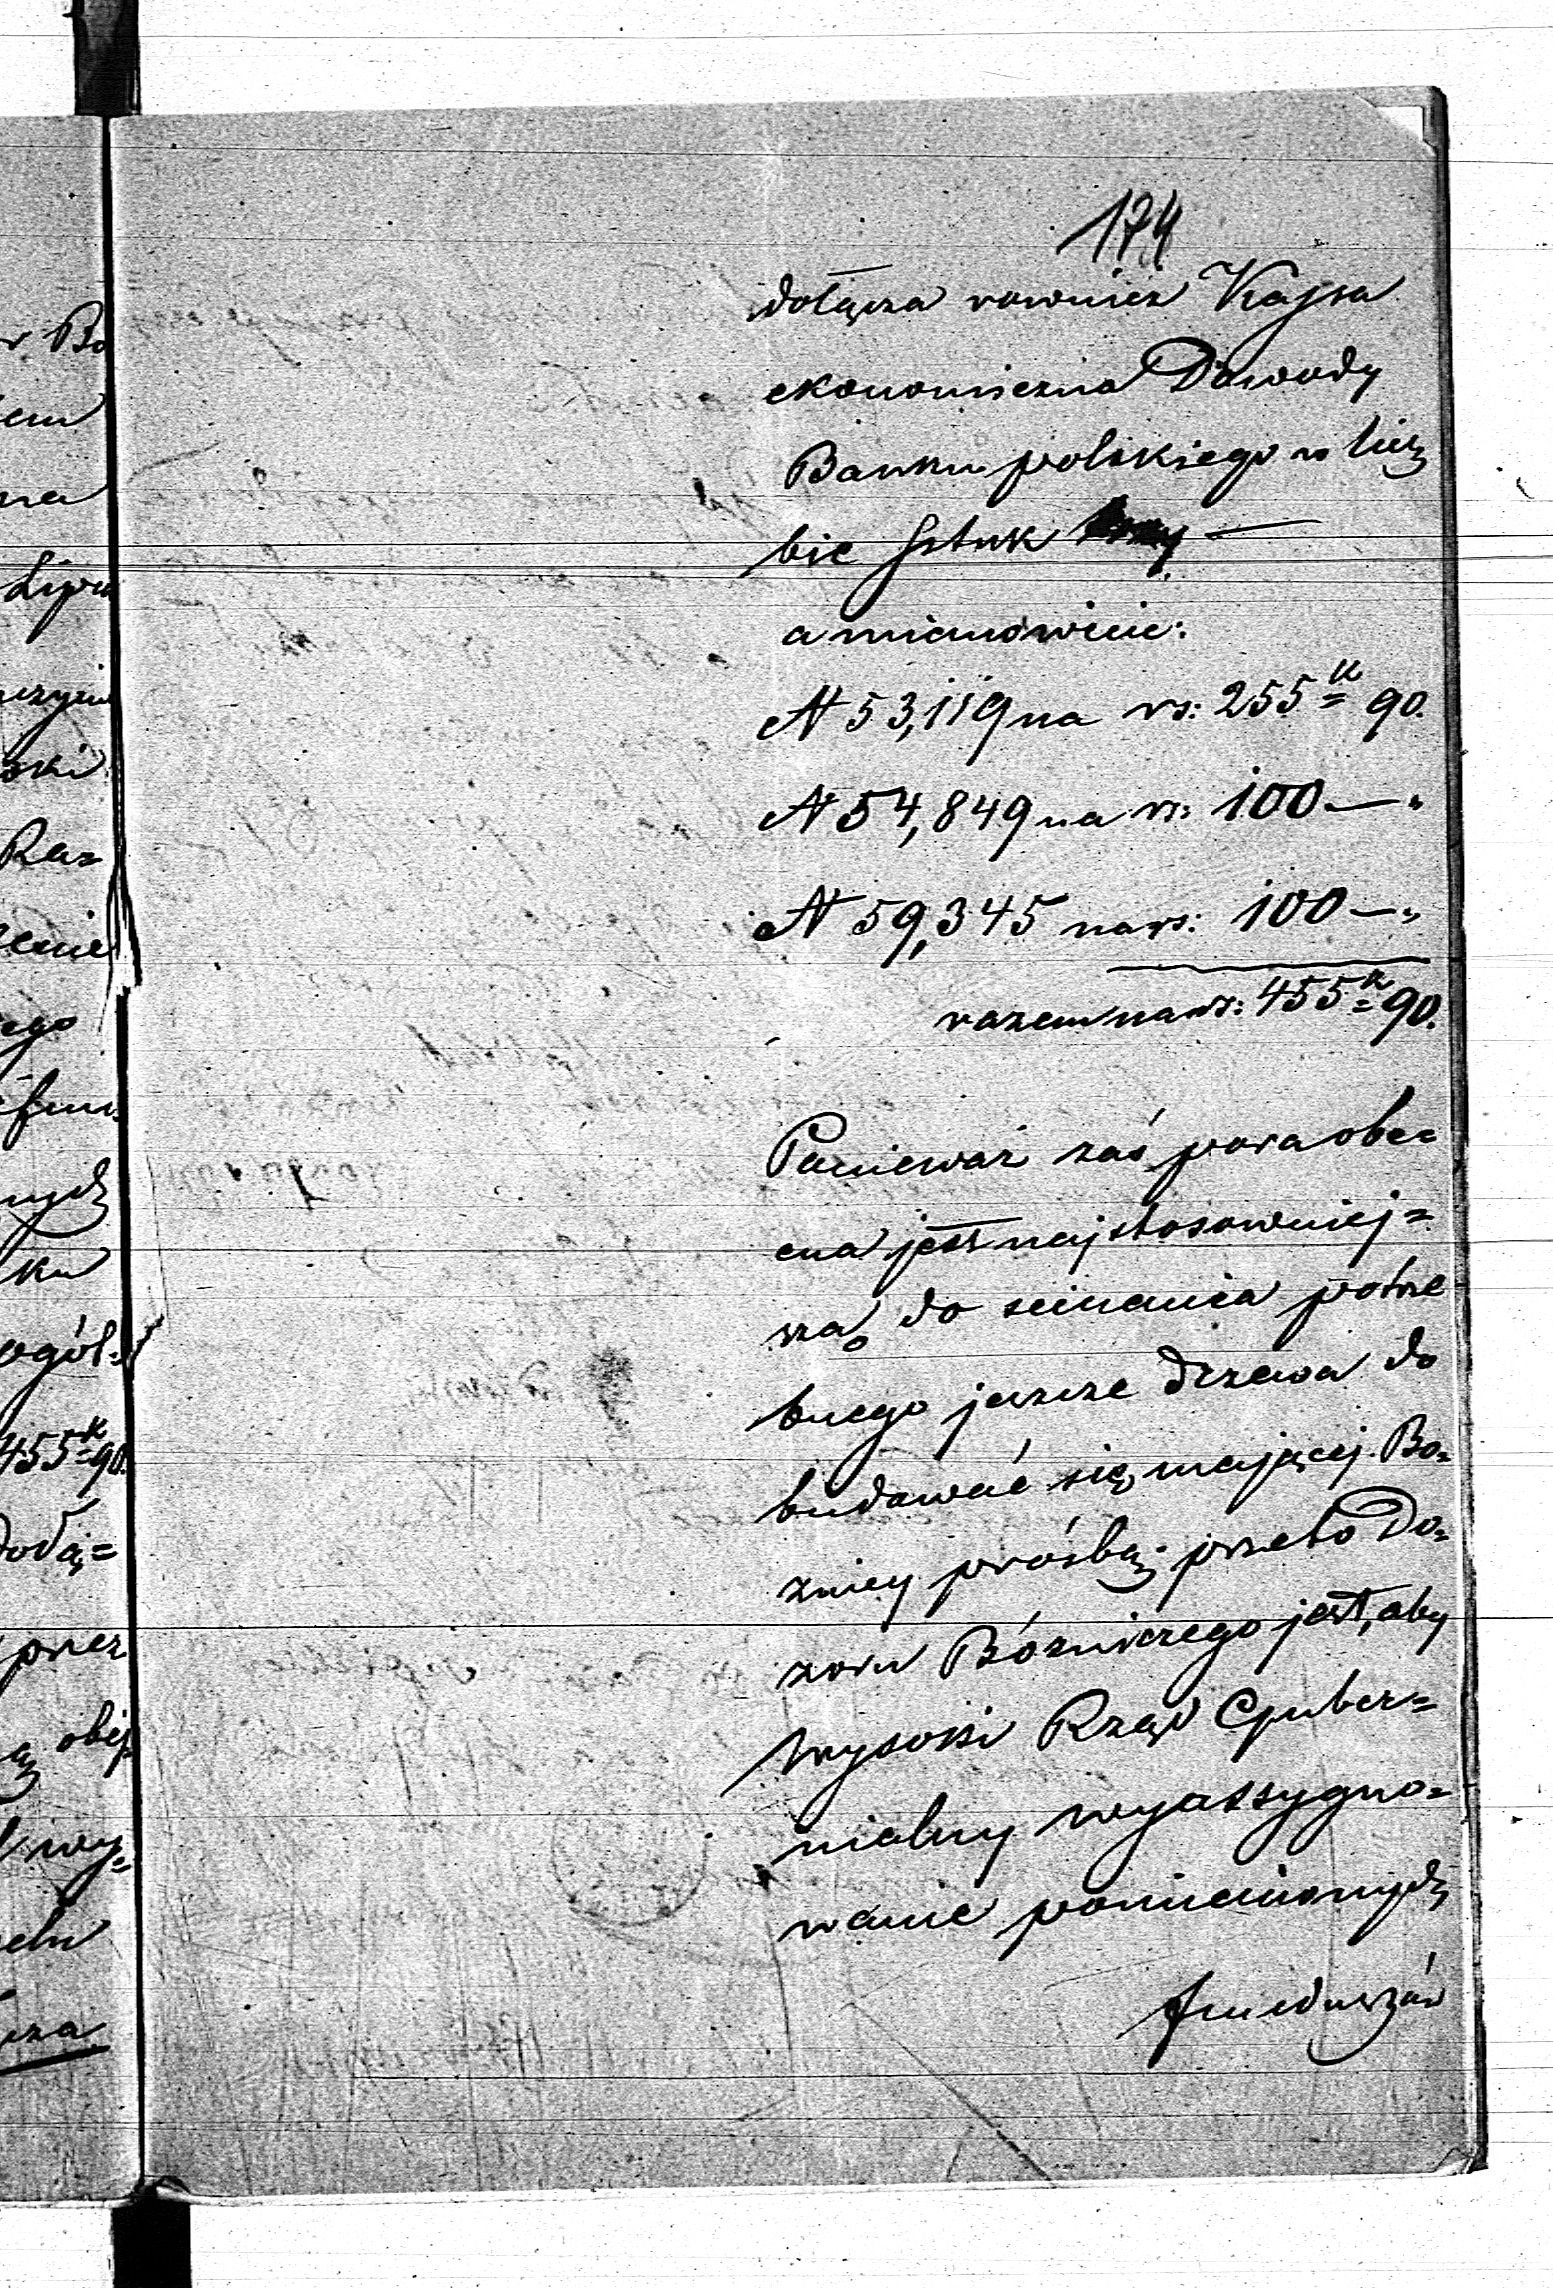 174
dołącza rownież Kassa
ekonomiczna Dowody
Banku polskiego w licz
bie sztuk —
a mianowicie:
N 53,119 na rs: 255 k 90.
N 54,849 na rs: 100 — "
N 59,345 na rs: 100 — "
razem na rs: 455 k 90.
Ponieważ zaś pora obe=
cna jest najstosowniej=
szą do scinania potrze
bnego jeszcze drzewa do
budować się mającej Bo=
żnicy prośbą przeto Do=
zoru Bóżniczego jest, aby
Wysoki Rząd Guber=
nialny wyassygno=
wanie pomienionych
funduszów
r Bo
na
Lipca
ski
Ra=
zenie
ego
nych
ku
ogól=
455 k 90.
dołą=
przez
wy=
cza